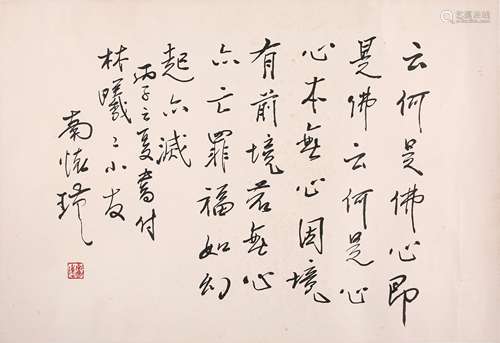 云何是佛心即
是佛云何是心
心本無心因境
有前境若無心
六亡罪福如幻
起六滅
丙子之夏書付
林曦〻小友
南懷瑾